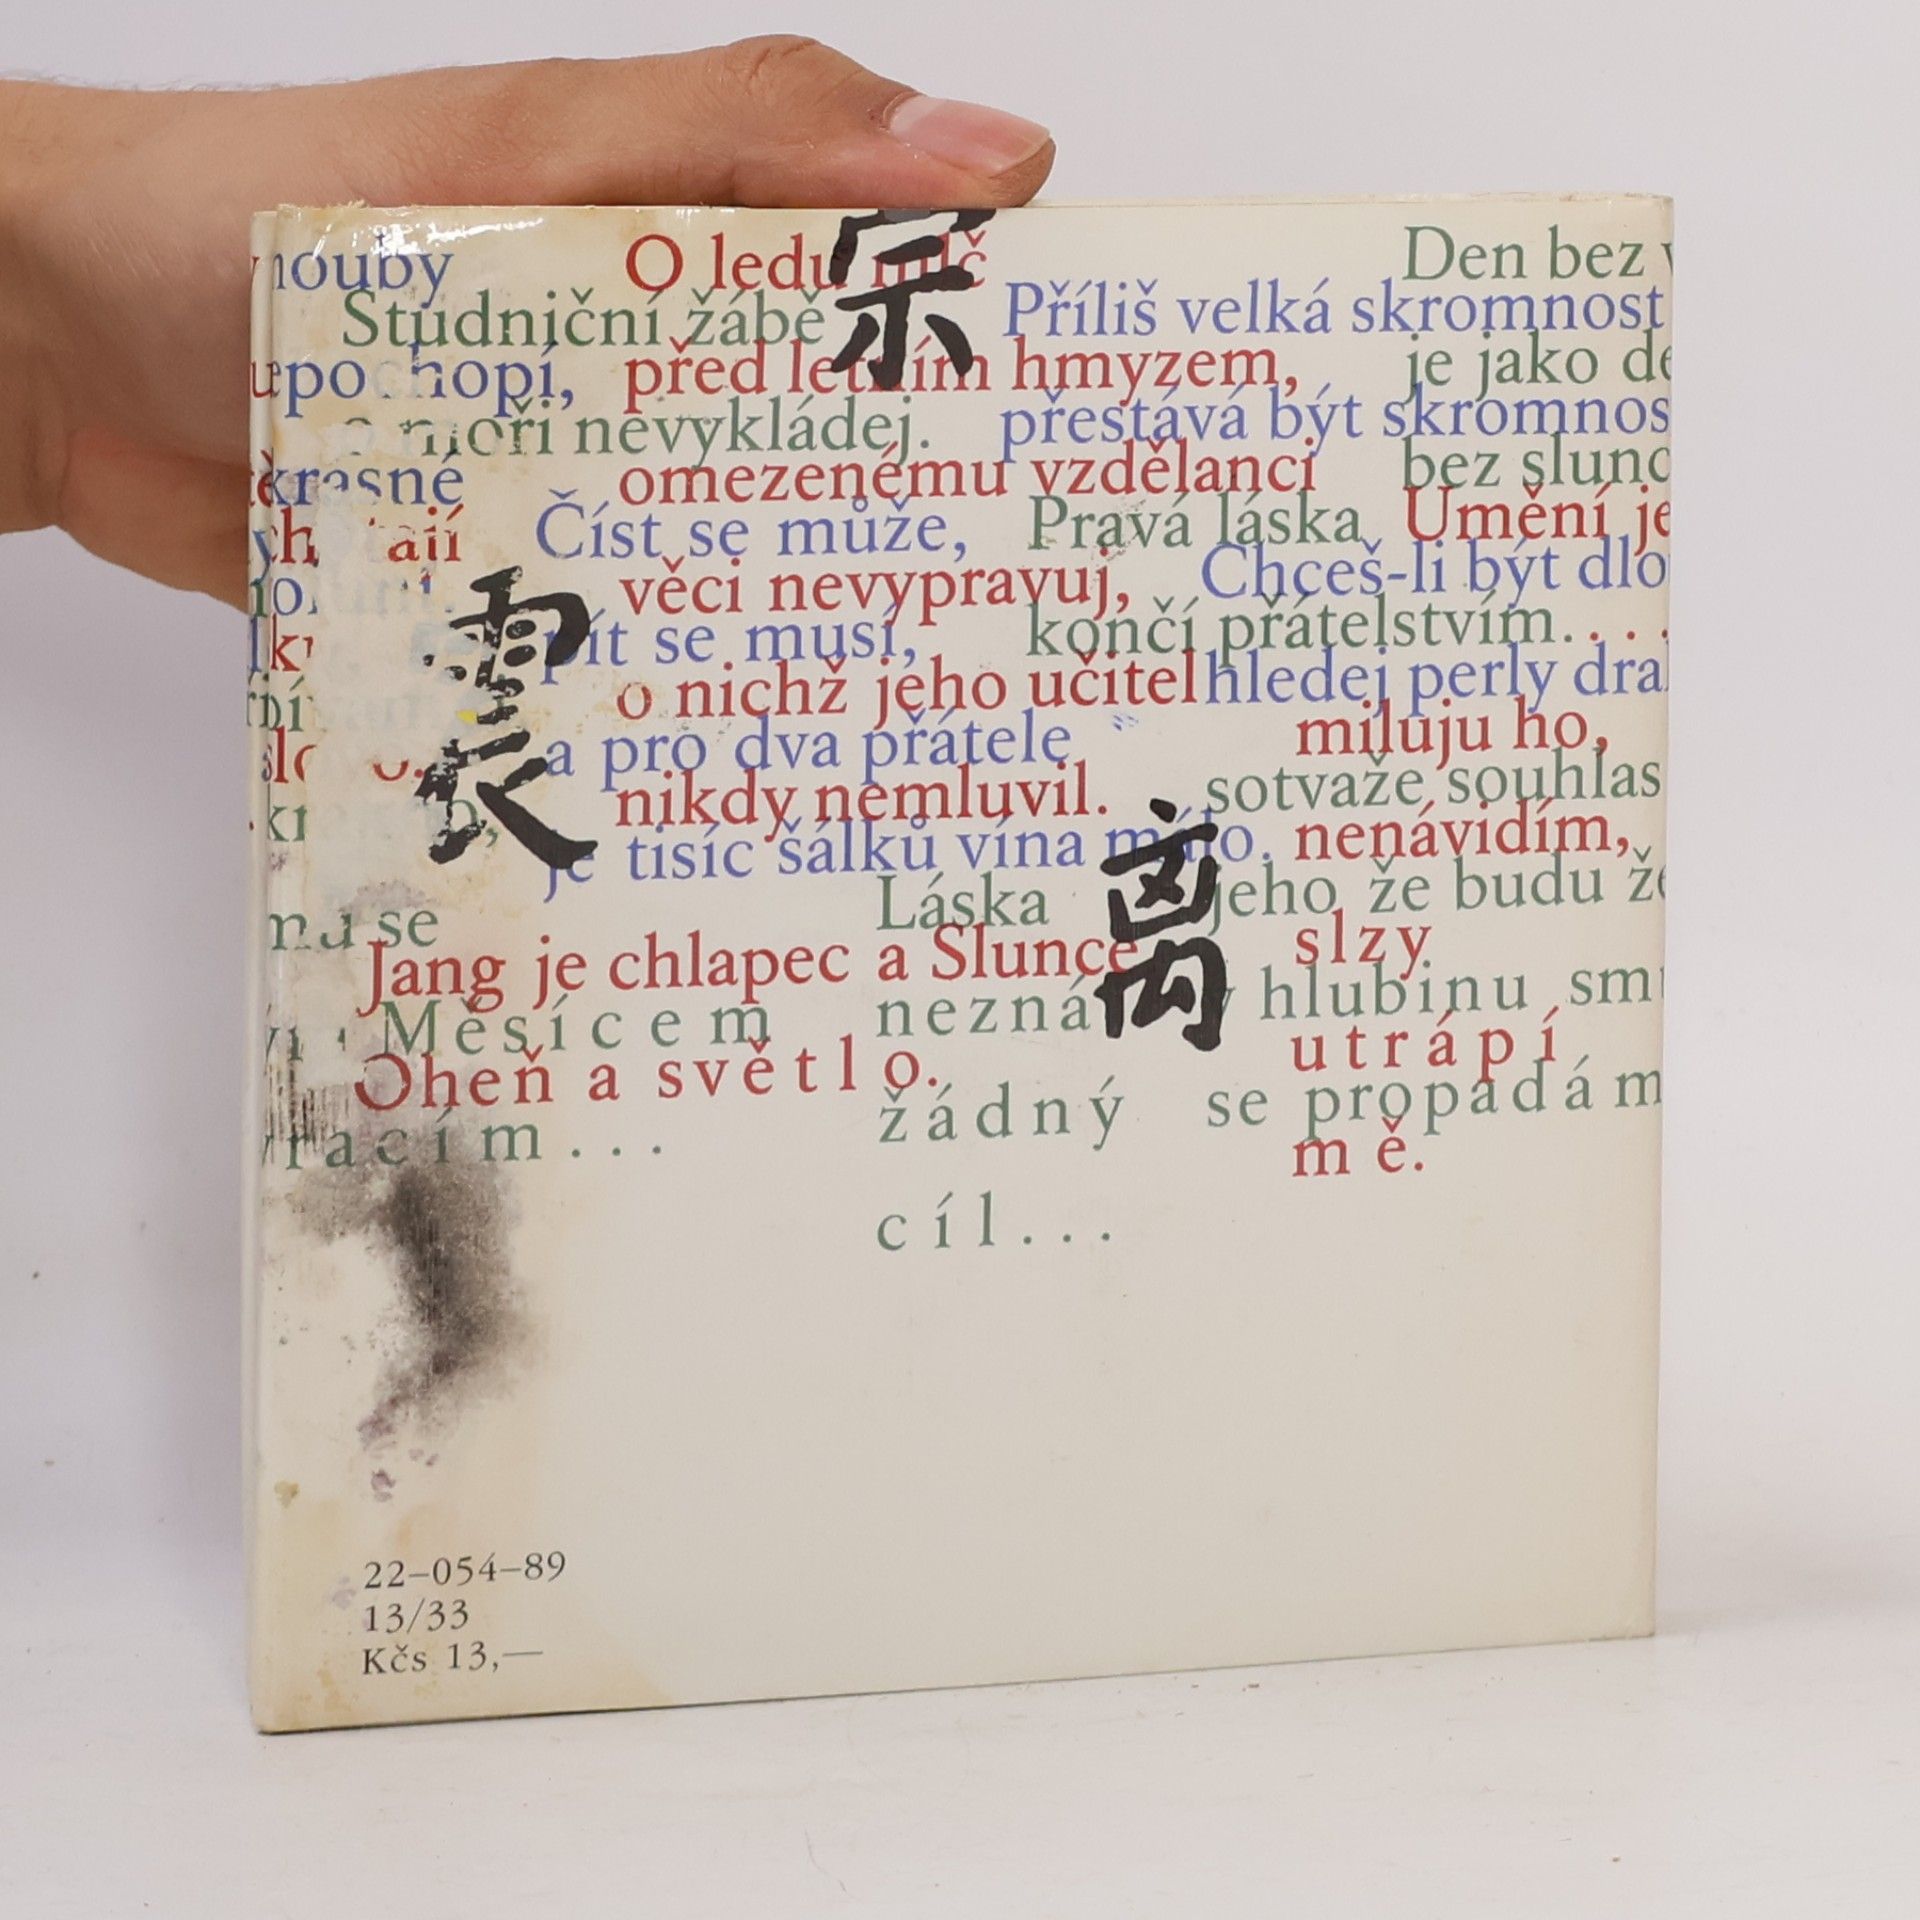 houby O ledu mlč Den bez
宗
Studniční žábě Příliš velká skromnost
nepochopí, před letním hmyzem, je jako
o moři nevykládej. přestává být skromnos
krásné omezenému vzdělanci bez slunc
Číst se může, Pravá láska Umění je
věci nevypravuj, Chceš-li být dlo
pít se musí, končí přátelstvím....
o nichž jeho učitel hledej perly dra
a pro dva přátele miluju ho,
nikdy nemluvil. sotvaže souhlas
je tisíc šálků vína málo. nenávidím,
Láska jeho že budu že
se
Jang je chlapec a Slunce slzy
Měsícem nezná v hlubinu sm
Oheň a světlo. utrápí
žádný se propadám
vracím... mě.
cíl...
22–054–89
13/33
Kčs 13,—